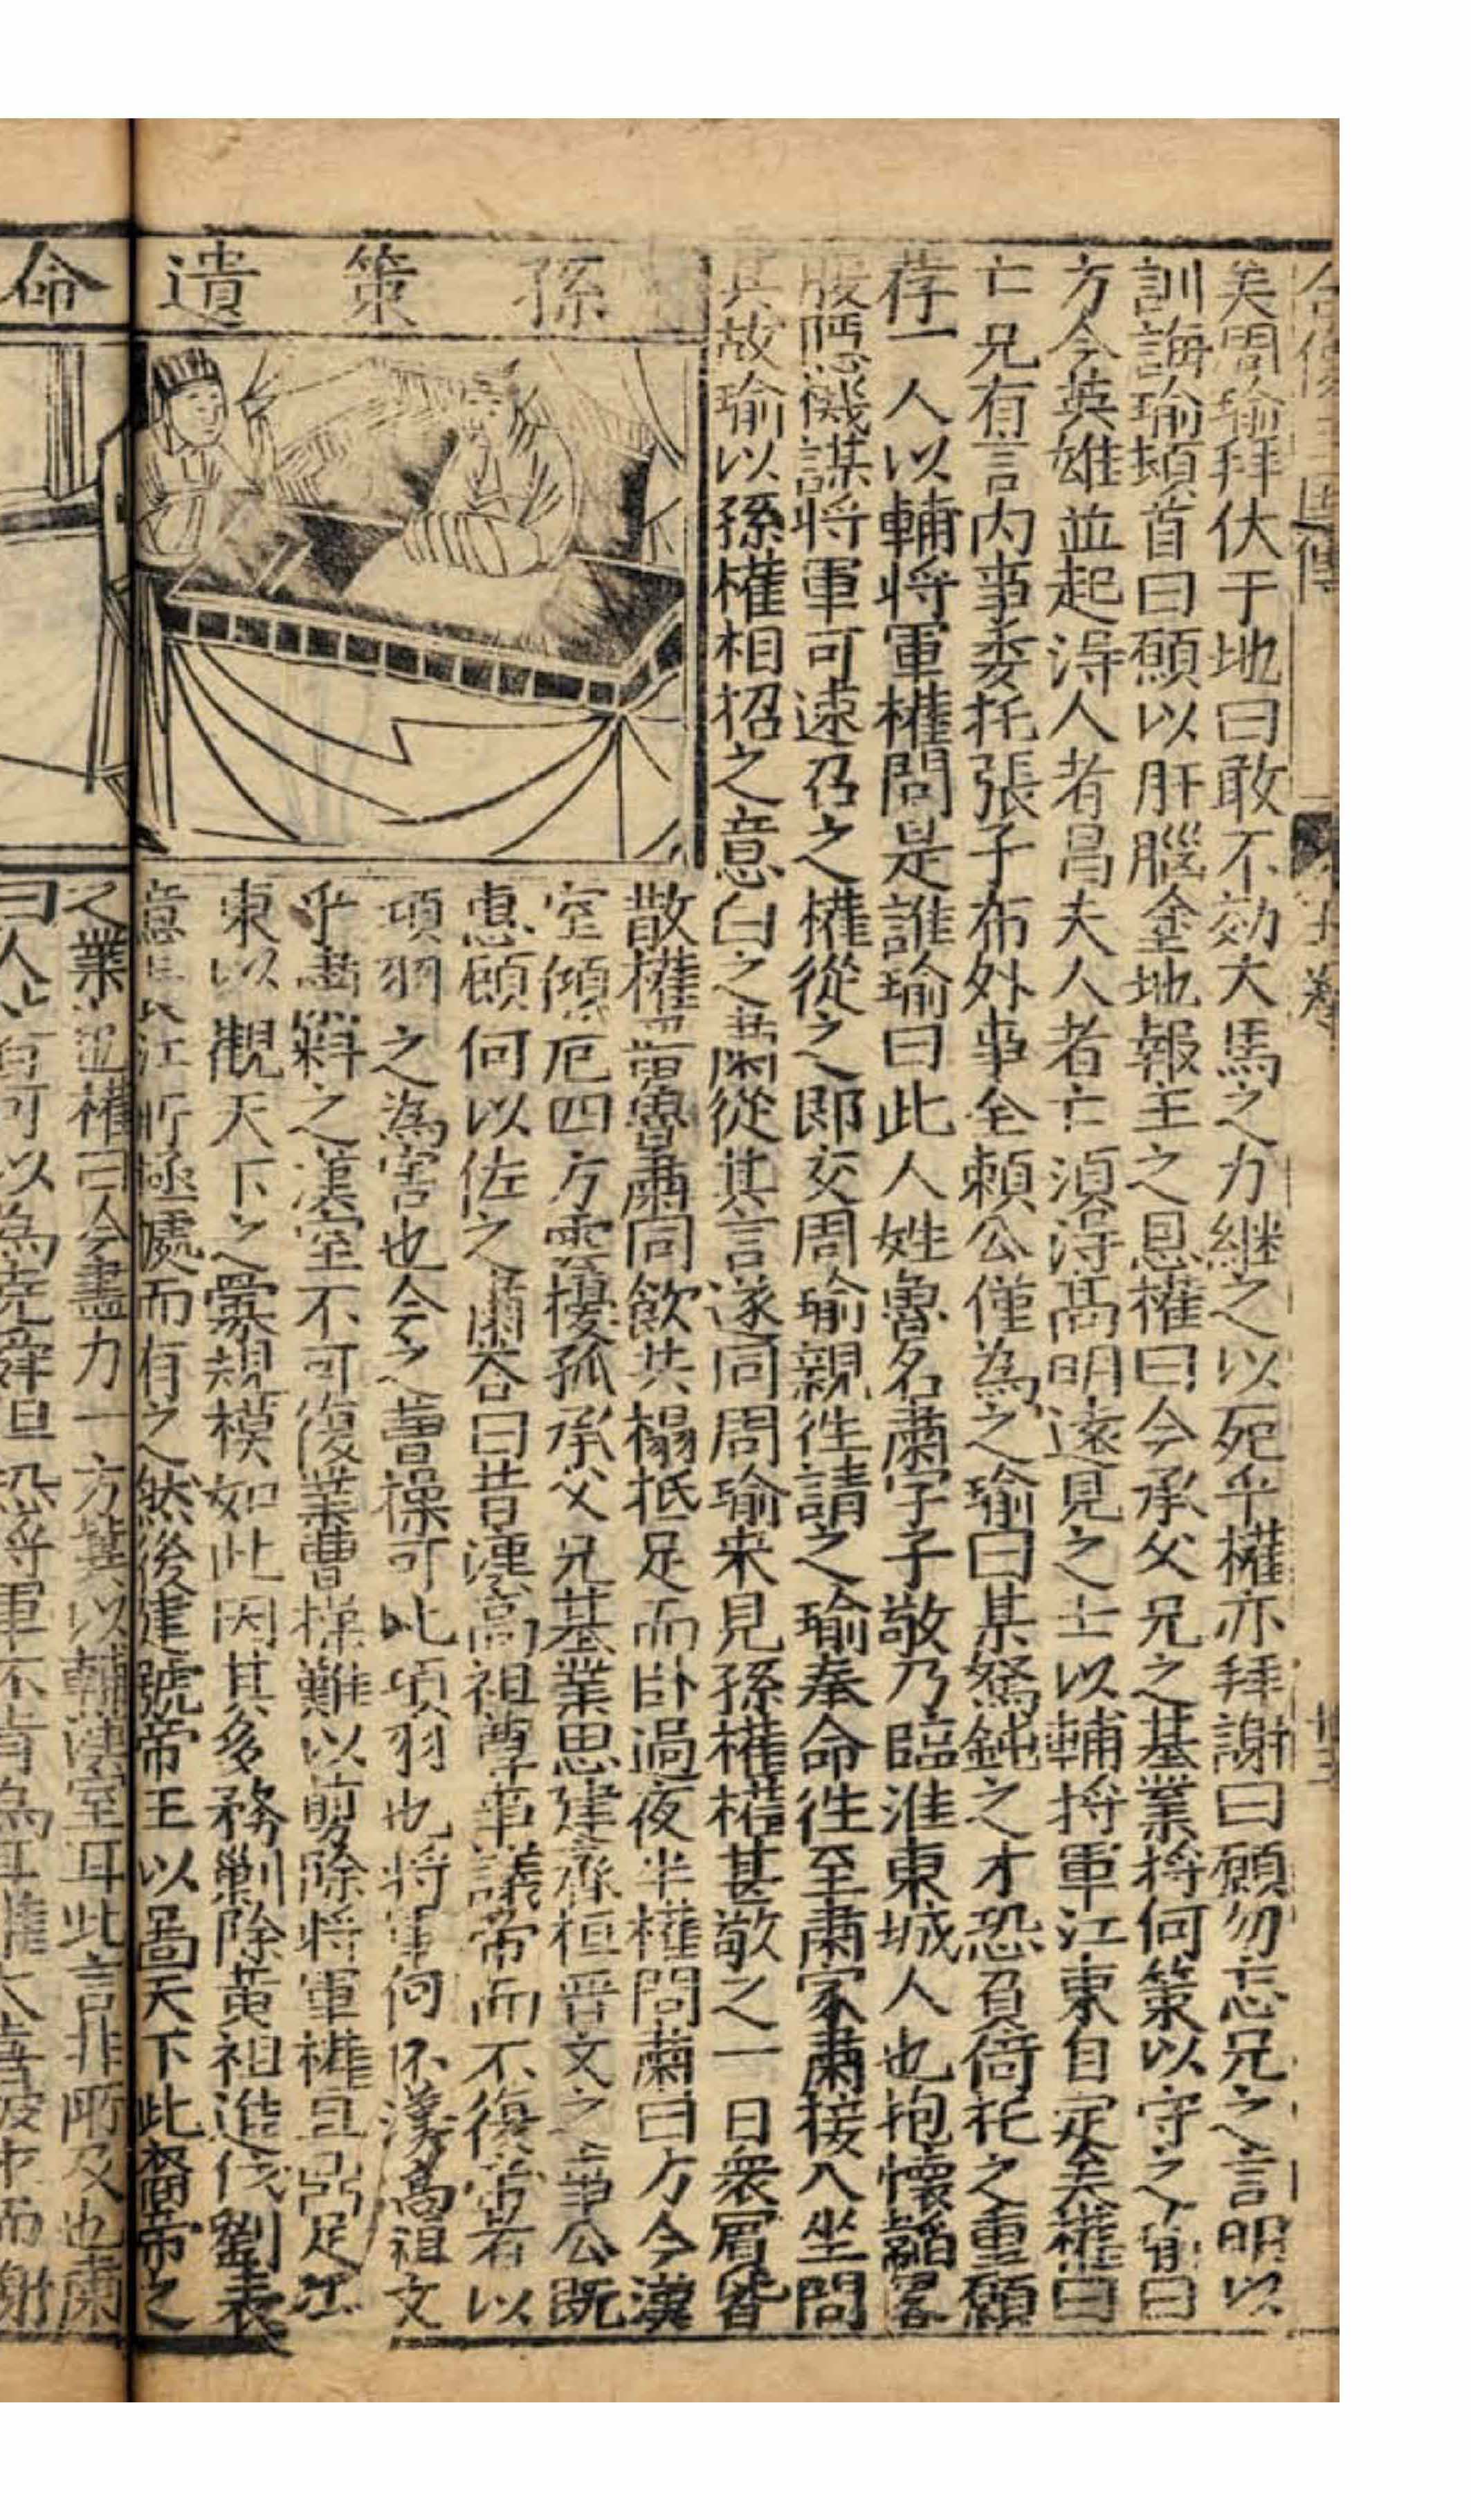 孫策遺命
矣周瑜拜伏于地曰敢不効犬馬之力継之以死乎權亦拜謝曰願勿忘兄之言明以
訓誨瑜頓首曰願以肝腦塗地報主之恩權曰今承父兄之基業将何策以守之瑜曰
方今英雄並起淂人者昌夫人者亡須淂髙明遠見之士以輔将軍江東自定矣權曰
亡兄有言内事委托張子布外事全頼公僅為之瑜曰某駑鈍之才恐負倚托之重願
荐一人以輔将軍權問是誰瑜曰此人姓魯名肅字子敬乃臨淮東城人也抱懷韜畧
腹隠機謀将軍可速召之權從之即交周瑜親徃請之瑜奉命徃至肅家肅接入坐問
其故瑜以孫權相招之意白之肅從其言遂同周瑜来見孫權權甚敬之一日衆官皆
散權畱魯肅同飲共榻抵足而卧過夜半權問肅曰方今漢
室傾危四方雲擾孤承父兄基業思建齊桓晋文之事公既
惠顧何以佐之肅答曰昔漢高祖尊事議帝而不獲者以
項羽之為害也今之曹操可比項羽也将軍何不漢高祖文
乎肅料之漢室不可復業曹操難以剪除将軍權且鼎足江
東以觀天下之釁規模如此因其多務剿除黄祖進伐劉表
意長江所極處而有之然後建號帝王以圖天下此髙帝之
之業也權曰今盡力一方兾以輔漢室耳此言非所及也肅
曰人皆可以為堯舜但恐将軍不肯為耳權大喜披衣而謝